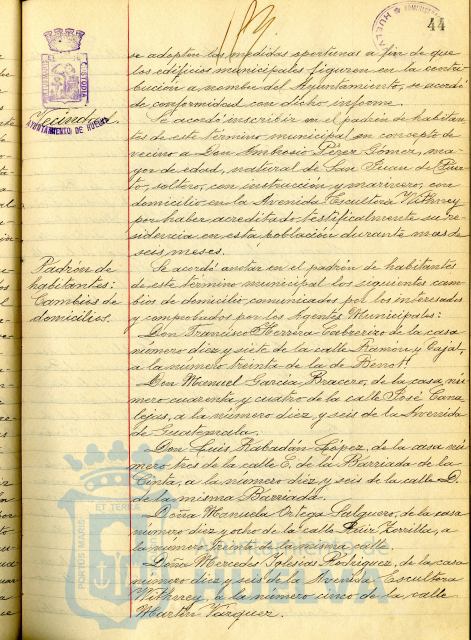 44
se adopten las medidas oportunas a fin de que
los edificios municipales figuren en la contri-
bución a nombre del Ayuntamiento, se acordó
de conformidad con dicho informe.
Vecindad.
AYUNTAMIENTO DE HUELVA
Se acordó inscribir en el padrón de habitan-
tes de este término municipal en concepto de
vecino a Don Ambrosio Pérez Gómez, ma-
yor de edad, natural de San Juan del Puer-
to, soltero, con instrucción y marinero, con
domicilio en la Avenida Escultora Withney
por haber acreditado testificalmente su re-
sidencia en esta población durante mas de
seis meses.
Padrón de
habitantes:
Cambios de
domicilios.
Se acordó anotar en el padrón de habitantes
de este término municipal los siguientes cam-
bios de domicilio comunicados por los interesados
y comprobados por los Agentes Municipales:
Don Francisco Herrera Cabrerizo de la casa
número diez y siete de la calle Ramón y Cajal,
a la número treinta de la de Benot.
Don Manuel García Bracero, de la casa, nú-
mero cuarenta y cuatro de la calle José Cana-
lejas, a la número diez y seis de la Avenida
de Guatemala.
Don Luis Rabadán López, de la casa nú-
mero tres de la calle C. de la Barriada de la
Cinta, a la número diez y seis de la calle D.
de la misma Barriada.
Doña Manuela Ortega Salguero, de la casa
número diez y ocho de la calle Ruiz Zorrilla, a
la número treinta de la misma calle.
Doña Mercedes Iglesias Rodríguez, de la casa
número diez y seis de la Avenida Escultora
Withney, a la número cinco de la calle
Martín Vázquez.
PORTUS MARIS
ET TERRÆ
Ayuntamiento de
HUELVA